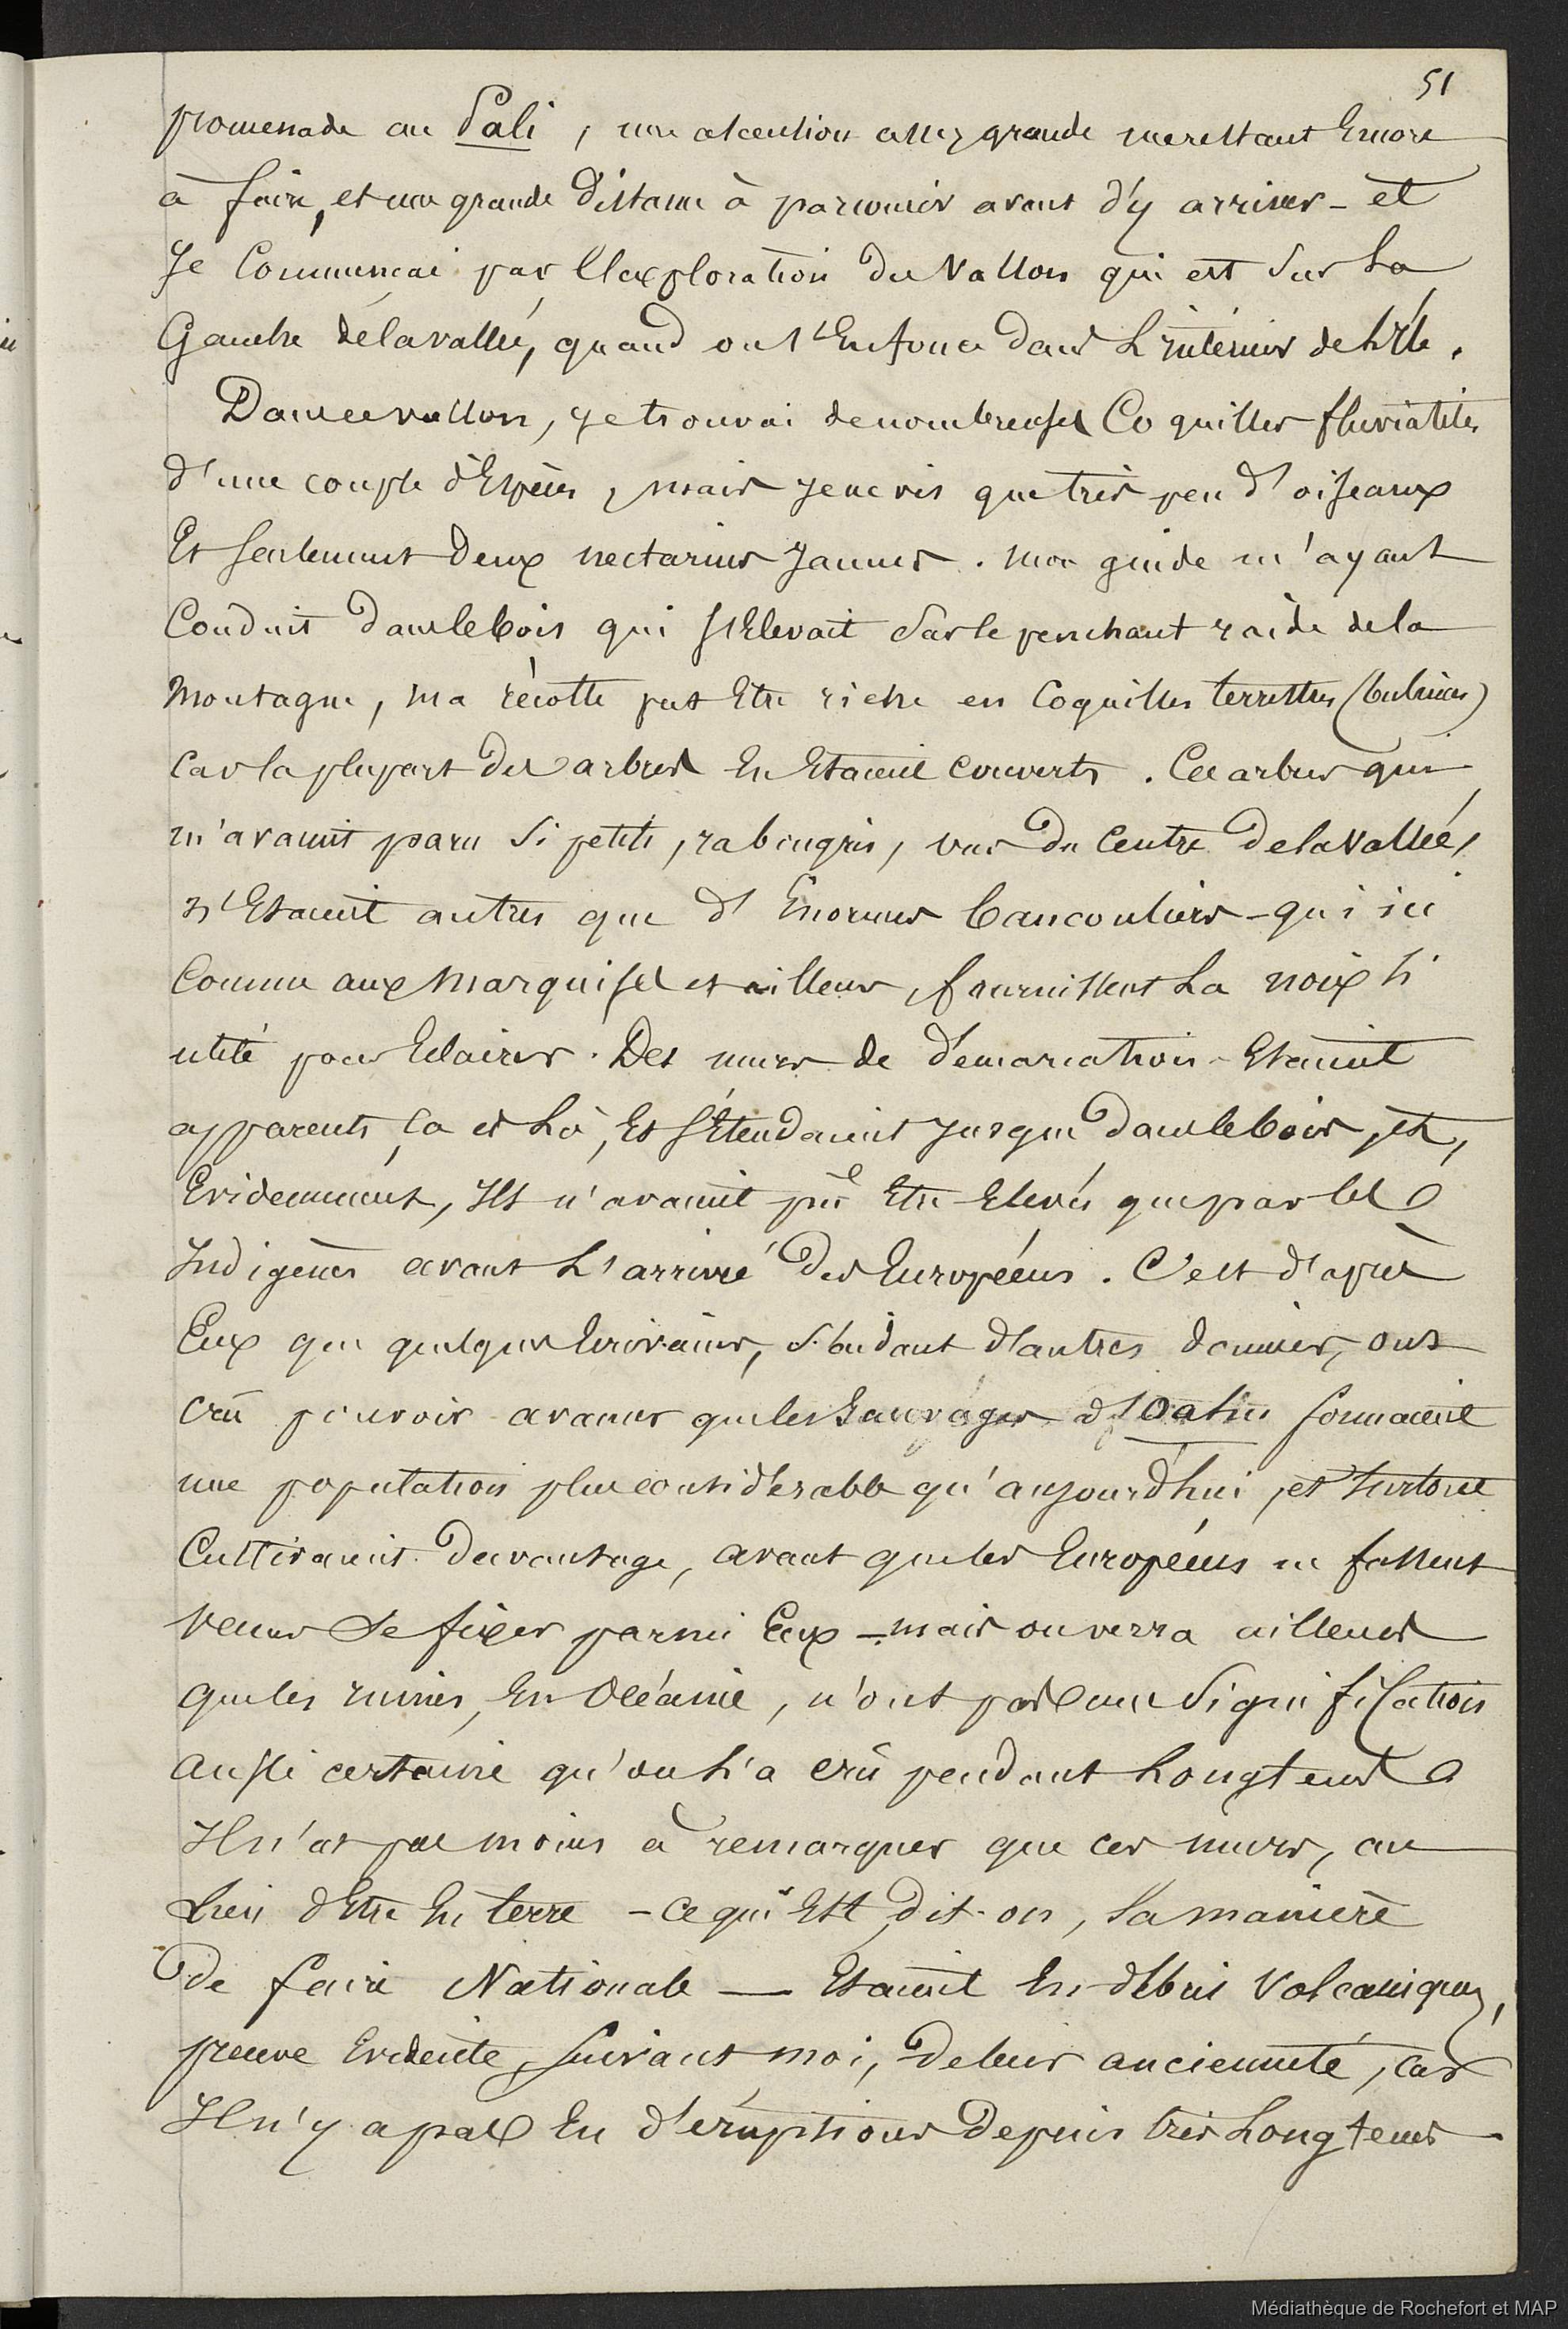 51
promenade au Pali, une ascention assez grande me restant Encore
à faire, et une grande distance à parcourir avant d'y arriver - et
Je Commençai par l'exploration du Vallon qui est sur La
Gauche de la vallée, quand on s'Enfonce dans L'intérieur de L'Ile.
Dans ce vallon, je trouvai de nombreuses Coquilles fluviatiles
d'une couple d'Espèces, mais je ne vis que très peu d'oiseaux
Et seulement deux nectarins jaunes. mon guide m'ayant
Conduit dans le bois qui s'Elevait sur le penchant raide de la
Montagne, ma récolte put Etre riche en Coquilles terrestres (bulimes)
Car la plupart des arbres En Etaient couverts. Ces arbres qui
m'avaient paru si petits, rabougris, vus du Centre de la Vallée,
n'Etaient autres que d'Enormes bancouliers - qui ici
Comme aux Marquises et ailleurs, fournissent La noix si
utile pour Eclairer. Des murs de démarcation Etaient
apparents ça et Là, Et s'Etendaient jusque dans le bois, et,
Evidemment, Ils n'avaient pû Etre Elevés que par les
Indigènes avant L'arrivé des Européens. C'est d'après
Eux que quelques Ecrivains, s'aidant d'autres données, ont
crû pouvoir avancer que les Sauvages d'Oahu formaient
une population plus considérable qu'aujourd'hui, et surtout
Cultivaient davantage, avant que les Européens ne fussent
venus se fixer parmi Eux - mais on verra ailleurs
que les ruines, En Océanie, n'ont pas une signification
aussi certaine qu'on L'a crû pendant Longtems
Il n'est pas moins à remarquer que ces murs, au
Lieu d'Etre En terre - ce qui Est, dit-on, la manière
de faire Nationale — Etaient En débris Volcaniques,
preuve Evidente, suivant moi, de leur ancienneté, car
Il n'y a pas Eu d'éruptions depuis très Longtems
Médiathèque de Rochefort et MAP